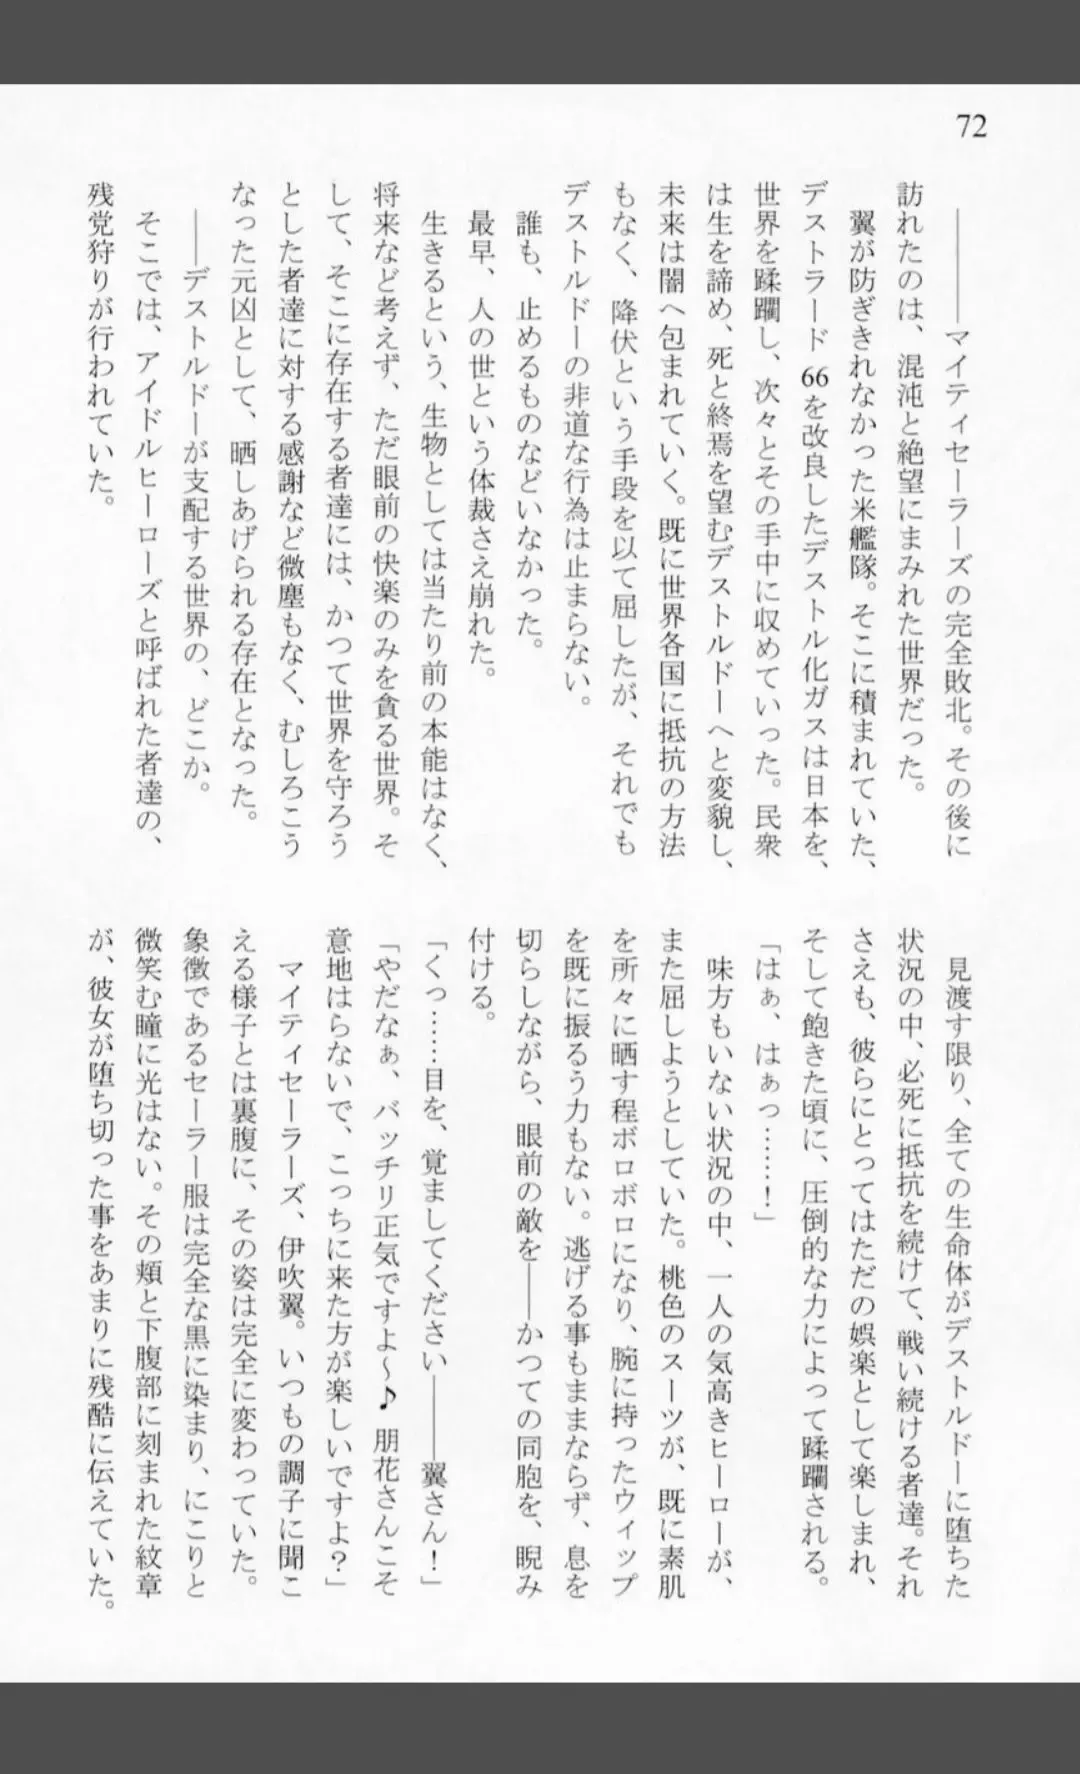 72
――――マイティセーラーズの完全敗北。その後に
訪れたのは、混沌と絶望にまみれた世界だった。
翼が防ぎきれなかった米艦隊。そこに積まれていた、
デストラード66を改良したデストル化ガスは日本を、
世界を蹂躙し、次々とその手中に収めていった。民衆
は生を諦め、死と終焉を望むデストルドーへと変貌し、
未来は闇へ包まれていく。既に世界各国に抵抗の方法
もなく、降伏という手段を以て屈したが、それでも
デストルドーの非道な行為は止まらない。
誰も、止めるものなどいなかった。
最早、人の世という体裁さえ崩れた。
生きるという、生物としては当たり前の本能はなく、
将来など考えず、ただ眼前の快楽のみを貪る世界。そ
して、そこに存在する者達には、かつて世界を守ろう
とした者達に対する感謝など微塵もなく、むしろこう
なった元凶として、晒しあげられる存在となった。
――デストルドーが支配する世界の、どこか。
そこでは、アイドルヒーローズと呼ばれた者達の、
残党狩りが行われていた。
見渡す限り、全ての生命体がデストルドーに堕ちた
状況の中、必死に抵抗を続けて、戦い続ける者達。それ
さえも、彼らにとってはただの娯楽として楽しまれ、
そして飽きた頃に、圧倒的な力によって蹂躙される。
「はぁ、はぁっ……！」
味方もいない状況の中、一人の気高きヒーローが、
また屈しようとしていた。桃色のスーツが、既に素肌
を所々に晒す程ボロボロになり、腕に持ったウィップ
を既に振るう力もない。逃げる事もままならず、息を
切らしながら、眼前の敵を――かつての同胞を、睨み
付ける。
「くっ……目を、覚ましてください――――翼さん！」
「やだなぁ、バッチリ正気ですよ～♪ 朋花さんこそ
意地はらないで、こっちに来た方が楽しいですよ？」
マイティセーラーズ、伊吹翼。いつもの調子に聞こ
える様子とは裏腹に、その姿は完全に変わっていた。
象徴であるセーラー服は完全な黒に染まり、にこりと
微笑む瞳に光はない。その頬と下腹部に刻まれた紋章
が、彼女が堕ち切った事をあまりに残酷に伝えていた。